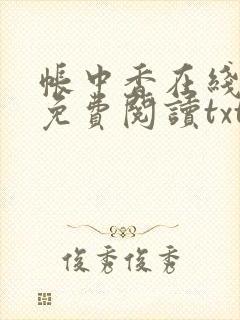 帳中香在綫
免費閱讀txt
俊秀俊秀